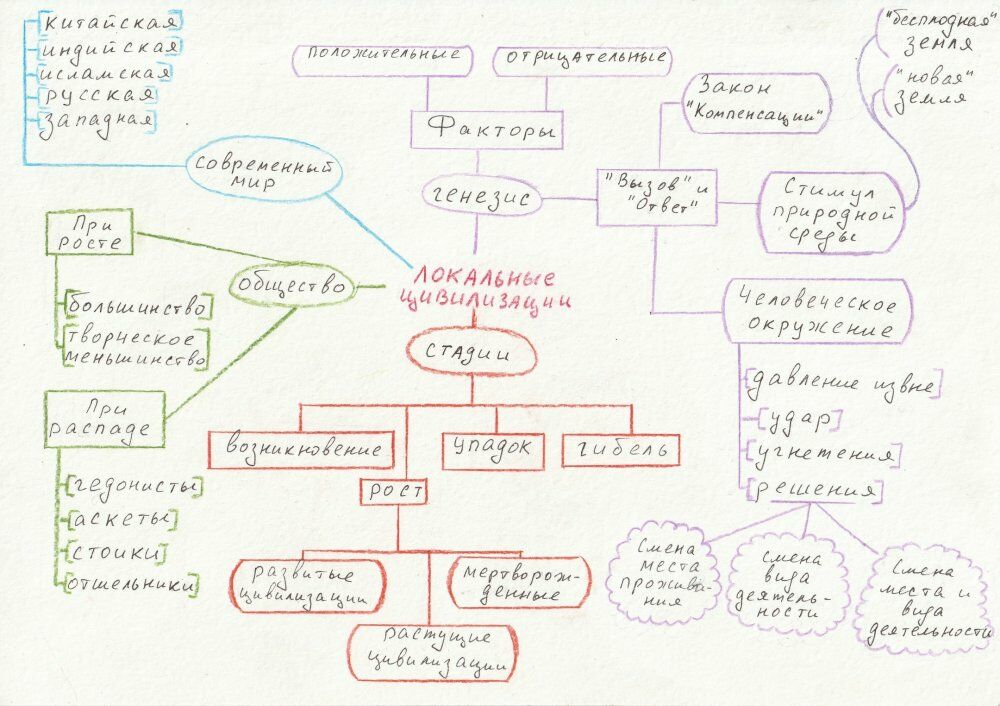 Китайская
индийская
исламская
русская
западная
современный
мир
положительные
отрицательные
Факторы
генезис
Закон
"Компенсации"
"бесплодная"
земля
"новая"
земля
"Вызов" и
"Ответ"
Стимул
природной
среды
Человеческое
окружение
давление извне
удар
угнетения
решения
Смена
места
прожива-
ния
Смена
вида
деятель-
ности
Смена
места и
вида
деятельности
При
росте
общество
большинство
творческое
меньшинство
При
распаде
гедонисты
аскеты
стоики
отшельники
ЛОКАЛЬНЫЕ
ЦИВИЛИЗАЦИИ
стадии
возникновение
рост
упадок
гибель
развитые
цивилизации
растущие
цивилизации
мертворож-
денные